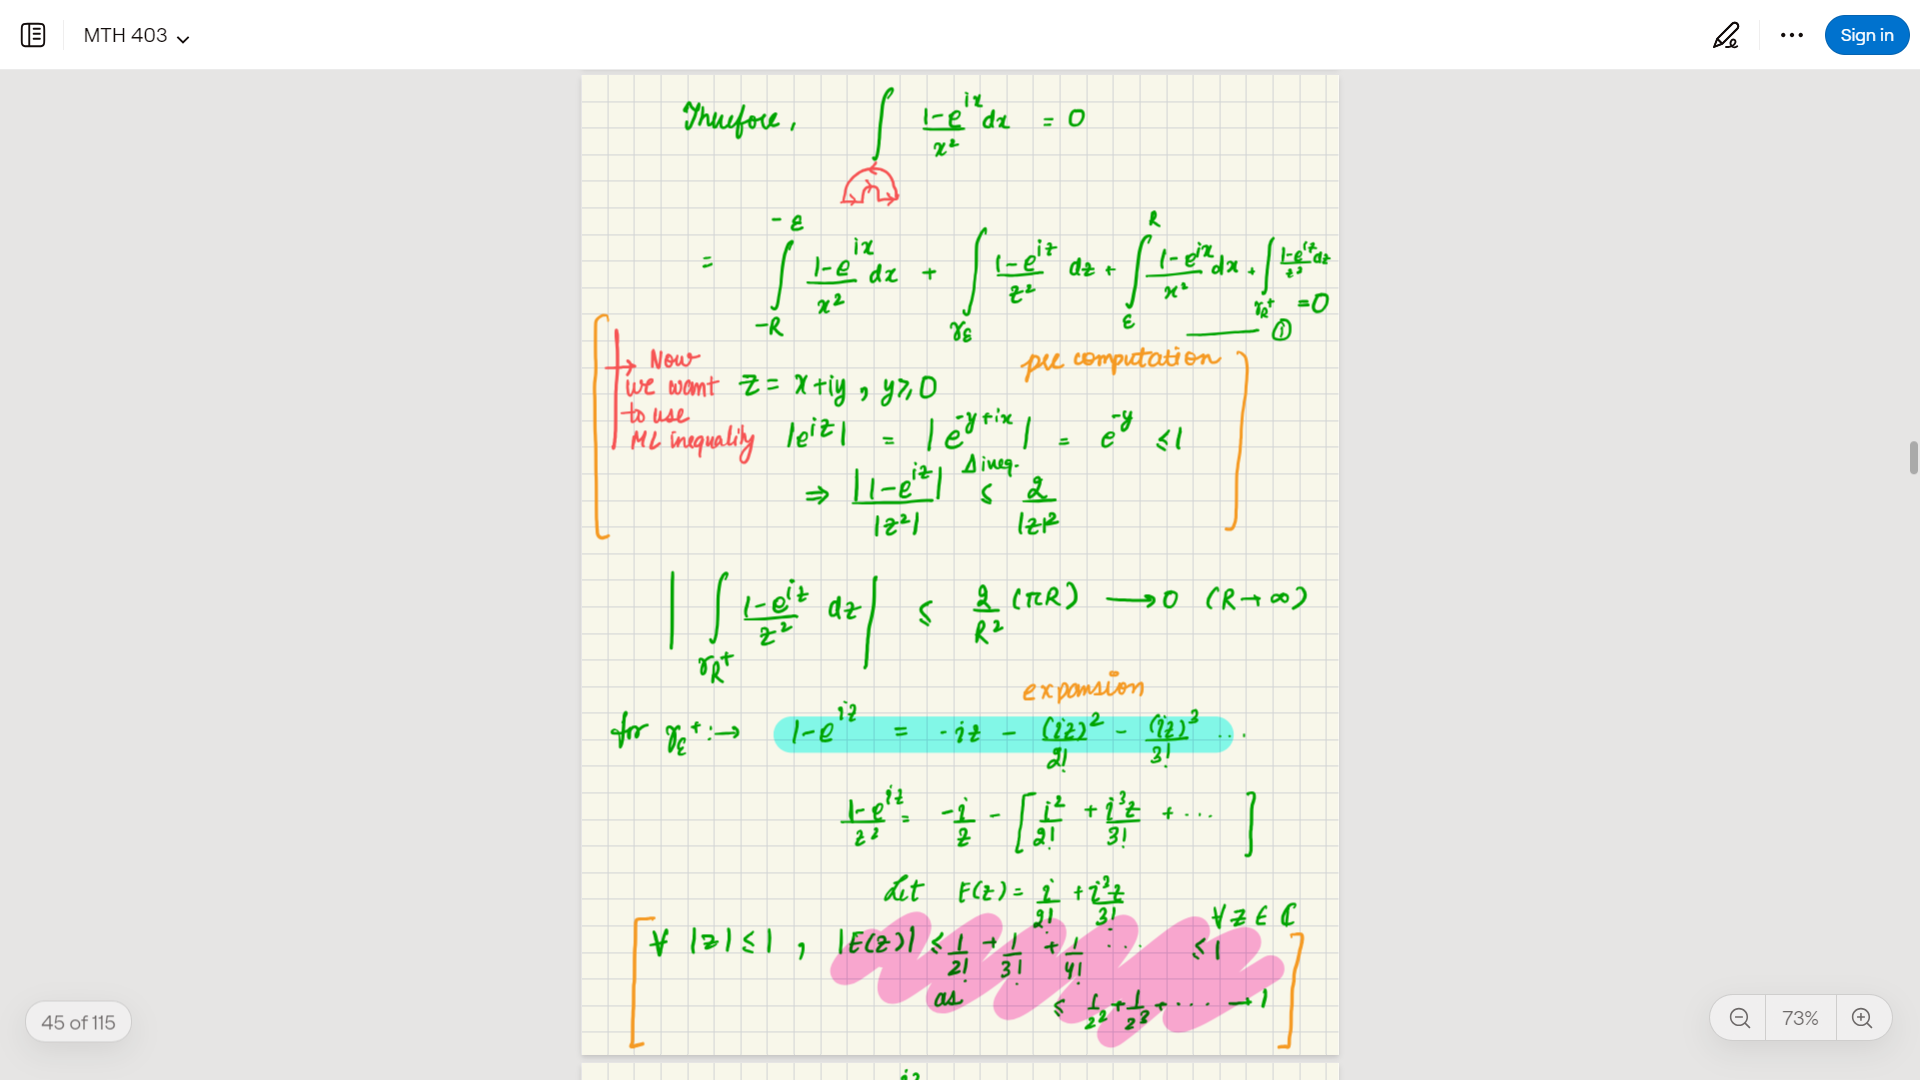 MTH 403
Sign in
Therefore, ∫ (1-e^{ix})/x² dx = 0
= ∫_{-R}^{-ε} (1-e^{ix})/x² dx + ∫_{γ_ε} (1-e^{iz})/z² dz + ∫_{ε}^{R} (1-e^{ix})/x² dx + ∫_{γ_R^+} (1-e^{iz})/z² dz = 0
——— ①
→ Now we want to use ML inequality
pre computation
z = x+iy , y ⩾ 0
|e^{iz}| = |e^{-y+ix}| = e^{-y} ≤ 1
⇒ |1-e^{iz}|/|z²| ≤ 2/|z|² Δ ineq.
|∫_{γ_R^+} (1-e^{iz})/z² dz| ≤ 2/R² (πR) → 0 (R → ∞)
expansion
for γ_ε^+ :→ 1-e^{iz} = -iz - (iz)²/2! - (iz)³/3! ...
(1-e^{iz})/z² = -i/z - [i²/2! + i³z/3! + ...]
Let E(z) = i/2! + i³z/3! ∀ z ∈ ℂ
∀ |z| ≤ 1 , |E(z)| ≤ 1/2! + 1/3! + 1/4! ... ≤ 1
as ≤ 1/2² + 1/2³ + .... → 1
45 of 115
73%